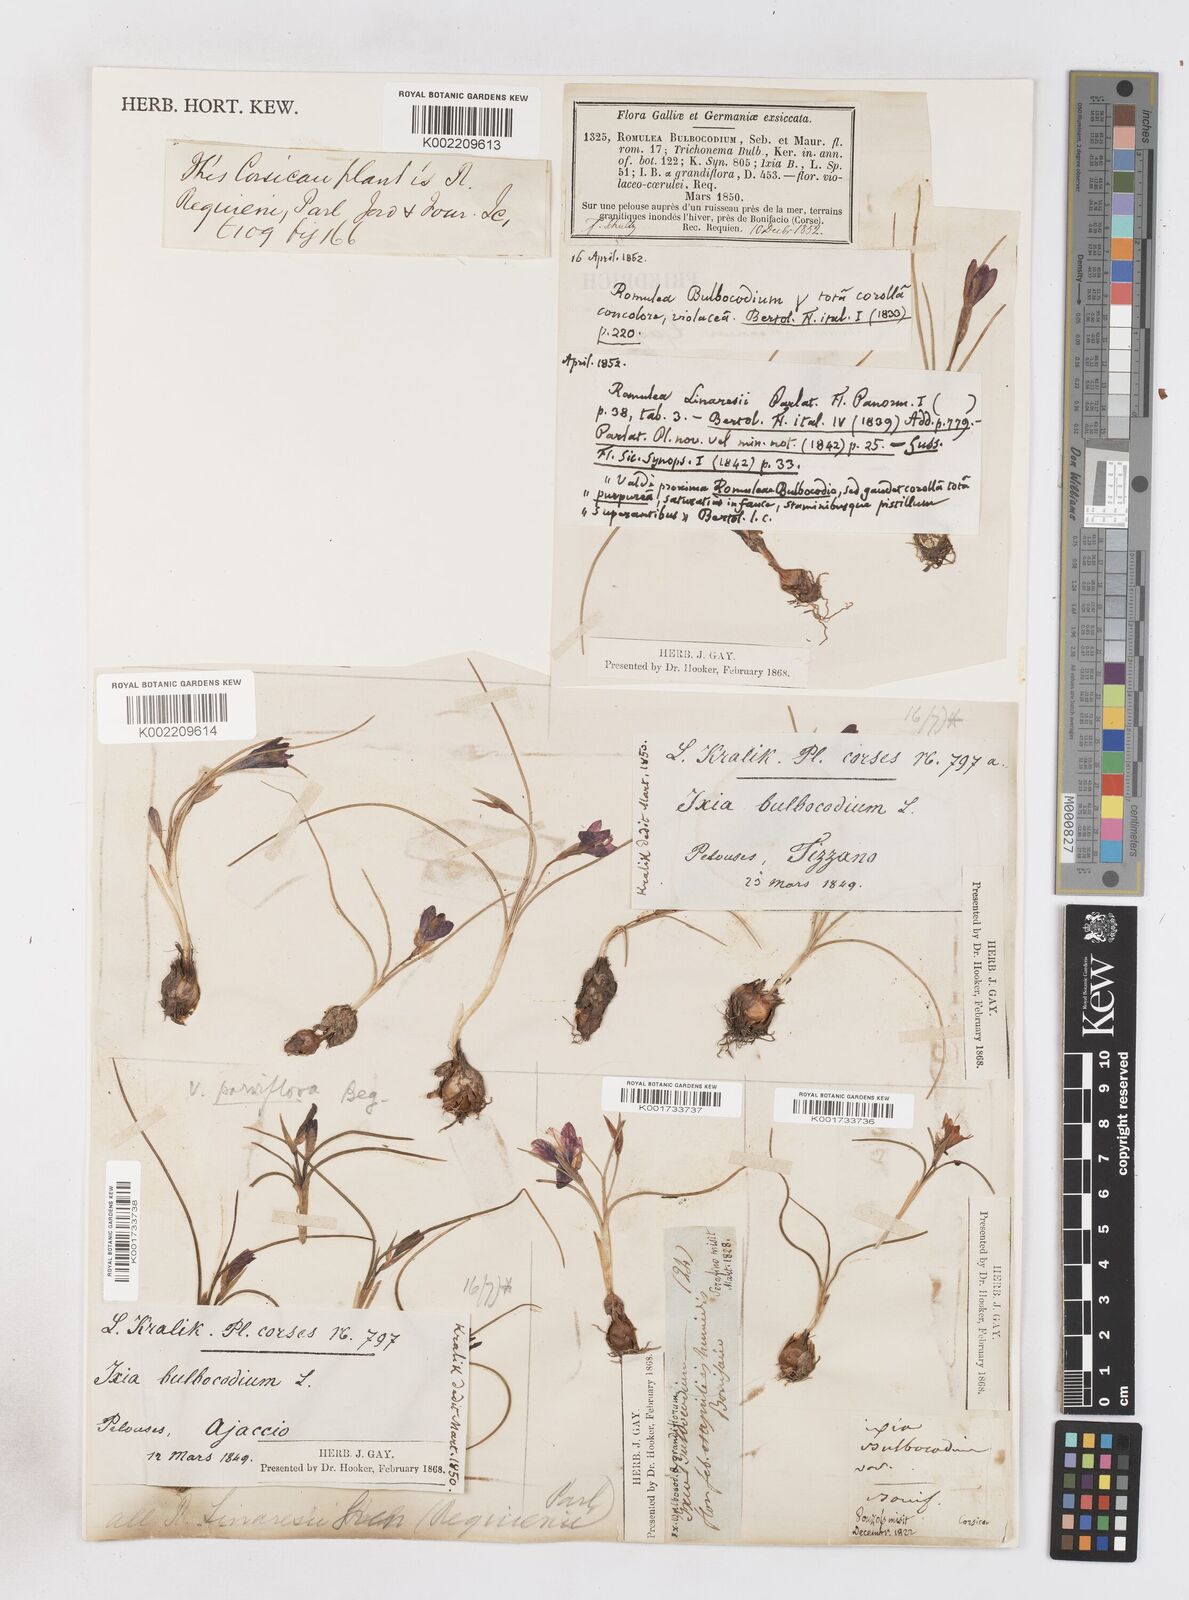 HERB. HORT. KEW.
ROYAL BOTANIC GARDENS KEW
K002209613
This Corsican plant is R.
Requieni, Parl Jord & Four. Ic,
t 109 fig 166
Flora Galliæ et Germaniæ exsiccata.
1325, Romulea Bulbocodium, Seb. et Maur. fl.
rom. 17; Trichonema Bulb., Ker. in. ann.
of. bot. 122; K. Syn. 805; Ixia B., L. Sp.
51; I. B. α grandiflora, D. 453. — flor. vio-
laceo-cœrulei, Req.
Mars 1850.
Sur une pelouse auprès d'un ruisseau près de la mer, terrains
granitiques inondés l'hiver, près de Bonifacio (Corse).
Rec. Requien. 10 Decbr 1852.
16 April. 1852.
Romulea Bulbocodium γ totâ corollâ
concolore, violaceâ. Bertol. Fl. ital. I (1833)
p. 220.
April. 1852.
Romulea Linaresii Parlat. Fl. Panorm. I ( )
p. 38, tab. 3. — Bertol. Fl. ital. IV (1839) Add. p. 779. —
Parlat. Pl. nov. vel min. not. (1842) p. 25. — Guss.
Fl. Sic. Synops. I (1842) p. 33.
" Valdè proxima Romuleae Bulbocodio, sed gaudet corollâ totâ
" purpureâ, saturatius in fauce, staminibusque pistillum
" superantibus " Bertol. l. c.
HERB. J. GAY.
Presented by Dr. Hooker, February 1868.
ROYAL BOTANIC GARDENS KEW
K002209614
16/7)*
L. Kralik. Pl. corses N. 797 a.
Ixia bulbocodium L.
Pelouses, Tizzano
25 Mars 1849.
Kralik dedit Mart. 1850.
HERB. J. GAY.
Presented by Dr. Hooker, February 1868.
v. parviflora Beg.
ROYAL BOTANIC GARDENS KEW
K001733737
ROYAL BOTANIC GARDENS KEW
K001733736
ROYAL BOTANIC GARDENS KEW
K001733738
16/7)*
L. Kralik. Pl. corses N. 797
Ixia bulbocodium L.
Pelouses, Ajaccio
12 Mars 1849.
HERB. J. GAY.
Presented by Dr. Hooker, February 1868.
Kralik dedit Mart. 1850.
all R. Linaresii (Requienii Parl)
HERB. J. GAY.
Presented by Dr. Hooker, February 1868.
Ixia Bulbocodium
Bonifacio
Serafino misit
Mart. 1828.
HERB. J. GAY.
Presented by Dr. Hooker, February 1868.
ixia
Bulbocodium
var.
Bonif.
misit
Decembr. 1822
Corsica
Don Williams
M000827
Royal Botanic Gardens
Kew
0 1 2 3 4 5 6 7 8 9 10
cm
copyright reserved